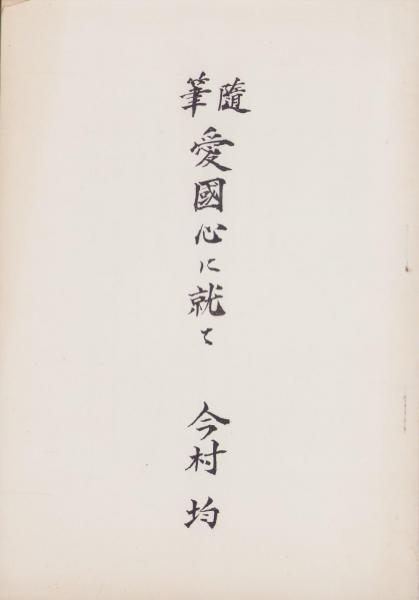 隨筆
愛國心に就て
今村均